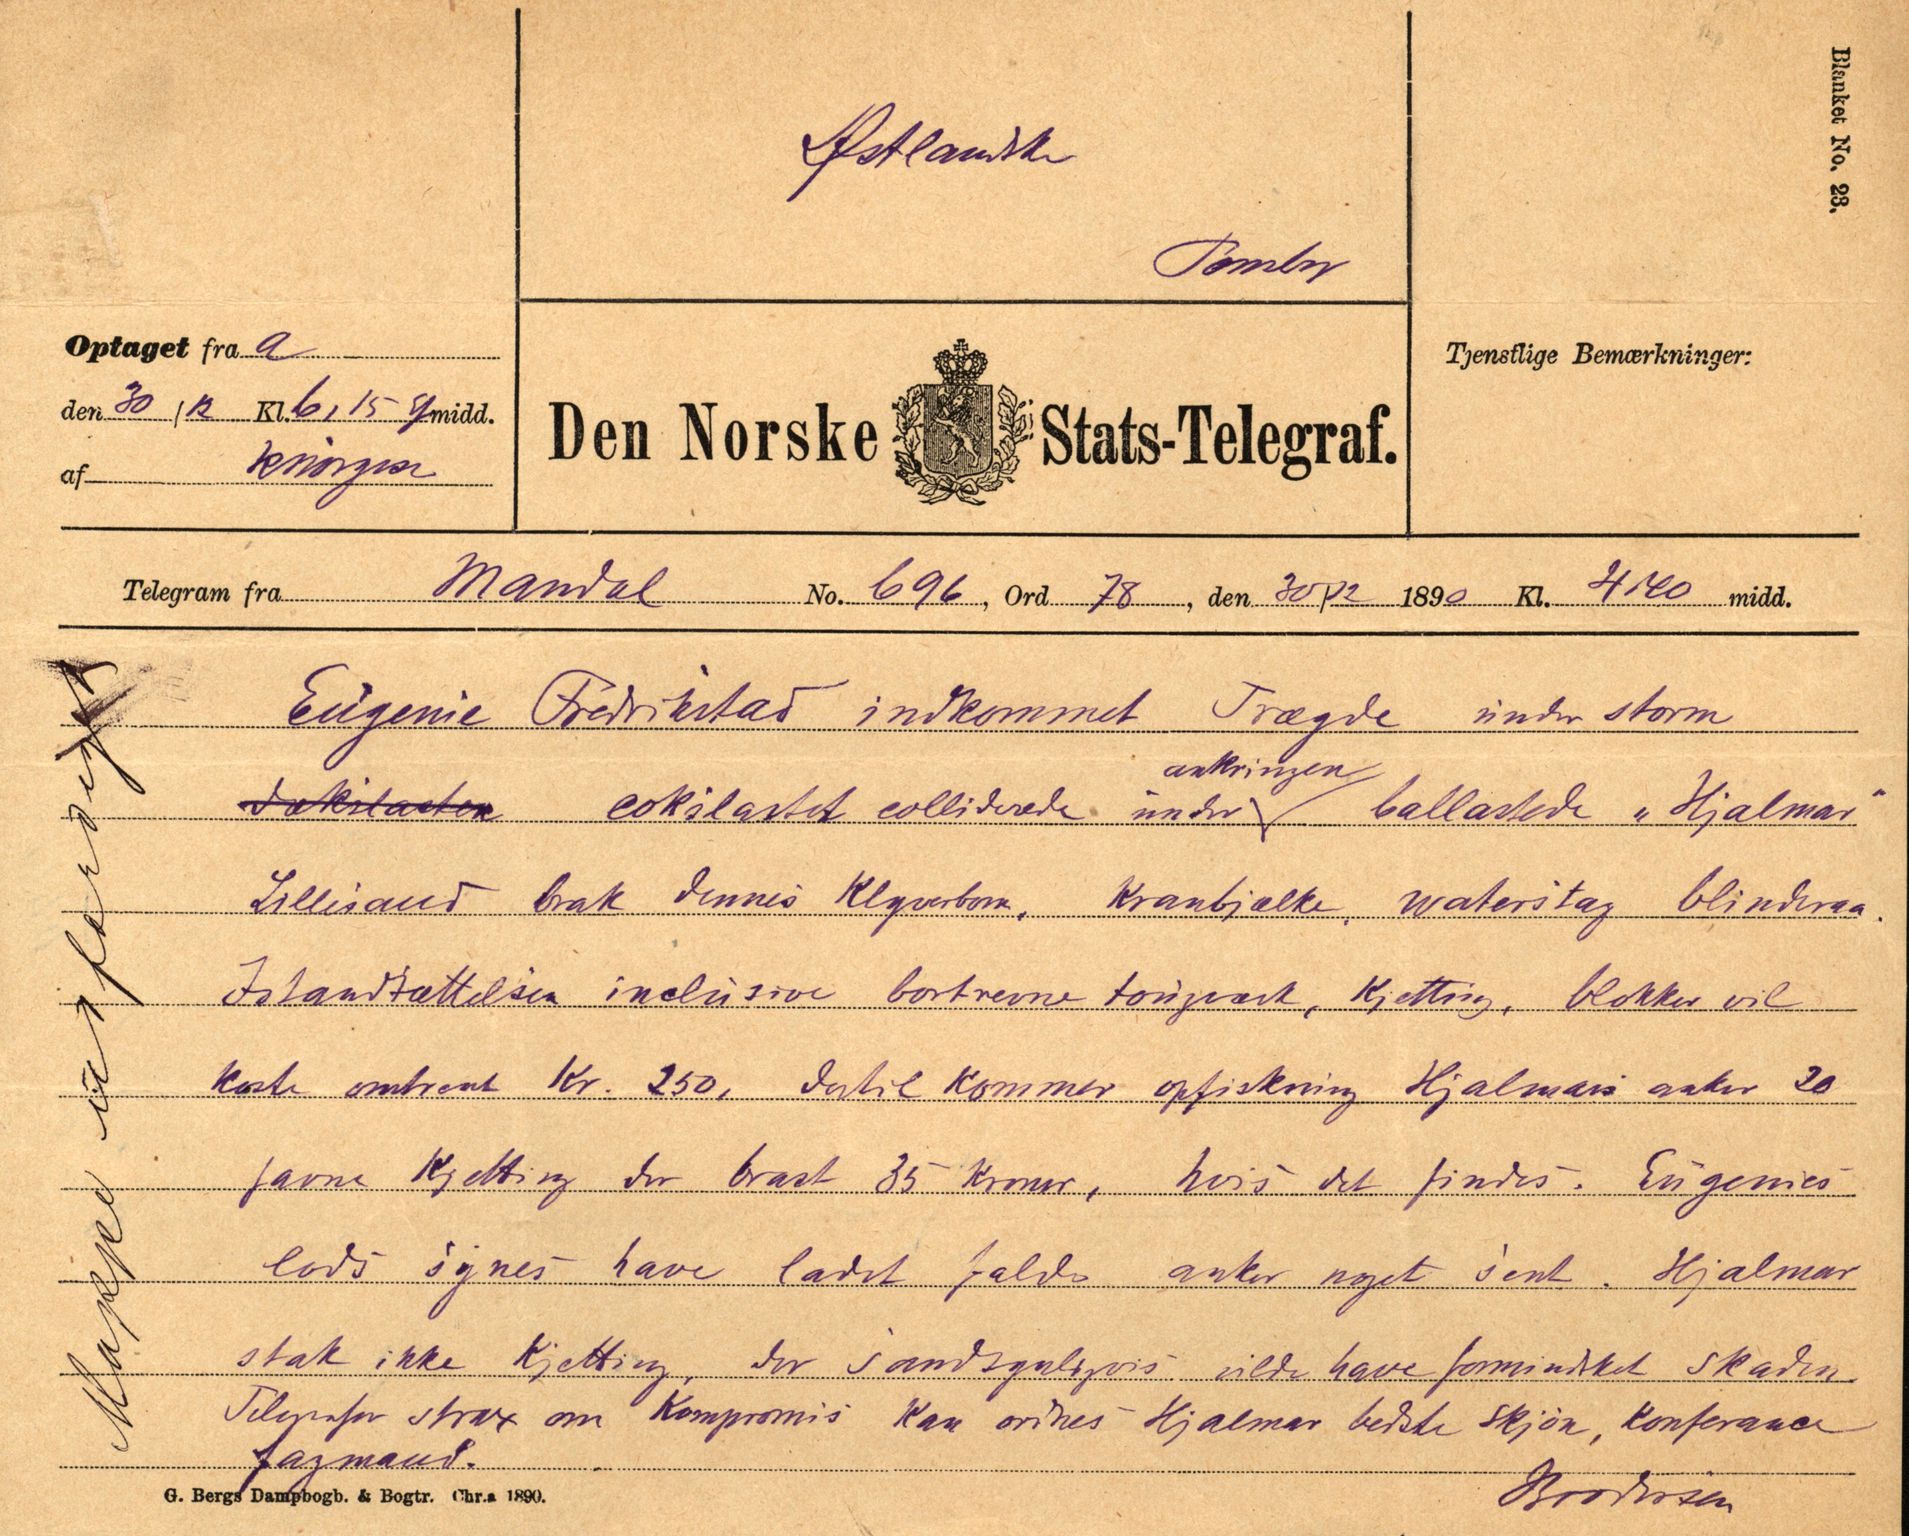 Blanket No. 23.
Østlandske
Tønsbg
Optaget fra a
den 30/12 Kl. 6,15 Emidd.
af
Den Norske Stats-Telegraf.
Tjenstlige Bemærkninger:
Telegram fra Mandal No. 696, Ord 78, den 30/12 1890 Kl. 4,40 midd.
Eugenie Fredrikstad indkommet Trægde under storm
ankringen
dækslasten cokslastet colliderede under ballastede "Hjalmar"
Lillisand brak dennes Klyverbom, Kranbjælke, waterstag blinderaa.
Istandsættelsen inclusive bortrevne tougværk, Kjetting, blokker vil
koste omtrent Kr. 250, dertil kommer opfiskning Hjalmars anker 20
favne Kjetting der brast 35 Kroner, hvis det findes. Eugenies
lods synes have ladet falde anker noget sent. Hjalmar
stak ikke Kjetting, der sandsynligvis vilde have formindsket skaden
Telegrafer strax om Kompromis Kan ordnes Hjalmar bedste Skjøn, Konferance
fagmand.
Brodersen
Mappe
G. Bergs Dampbogb. & Bogtr. Chr.a 1890.